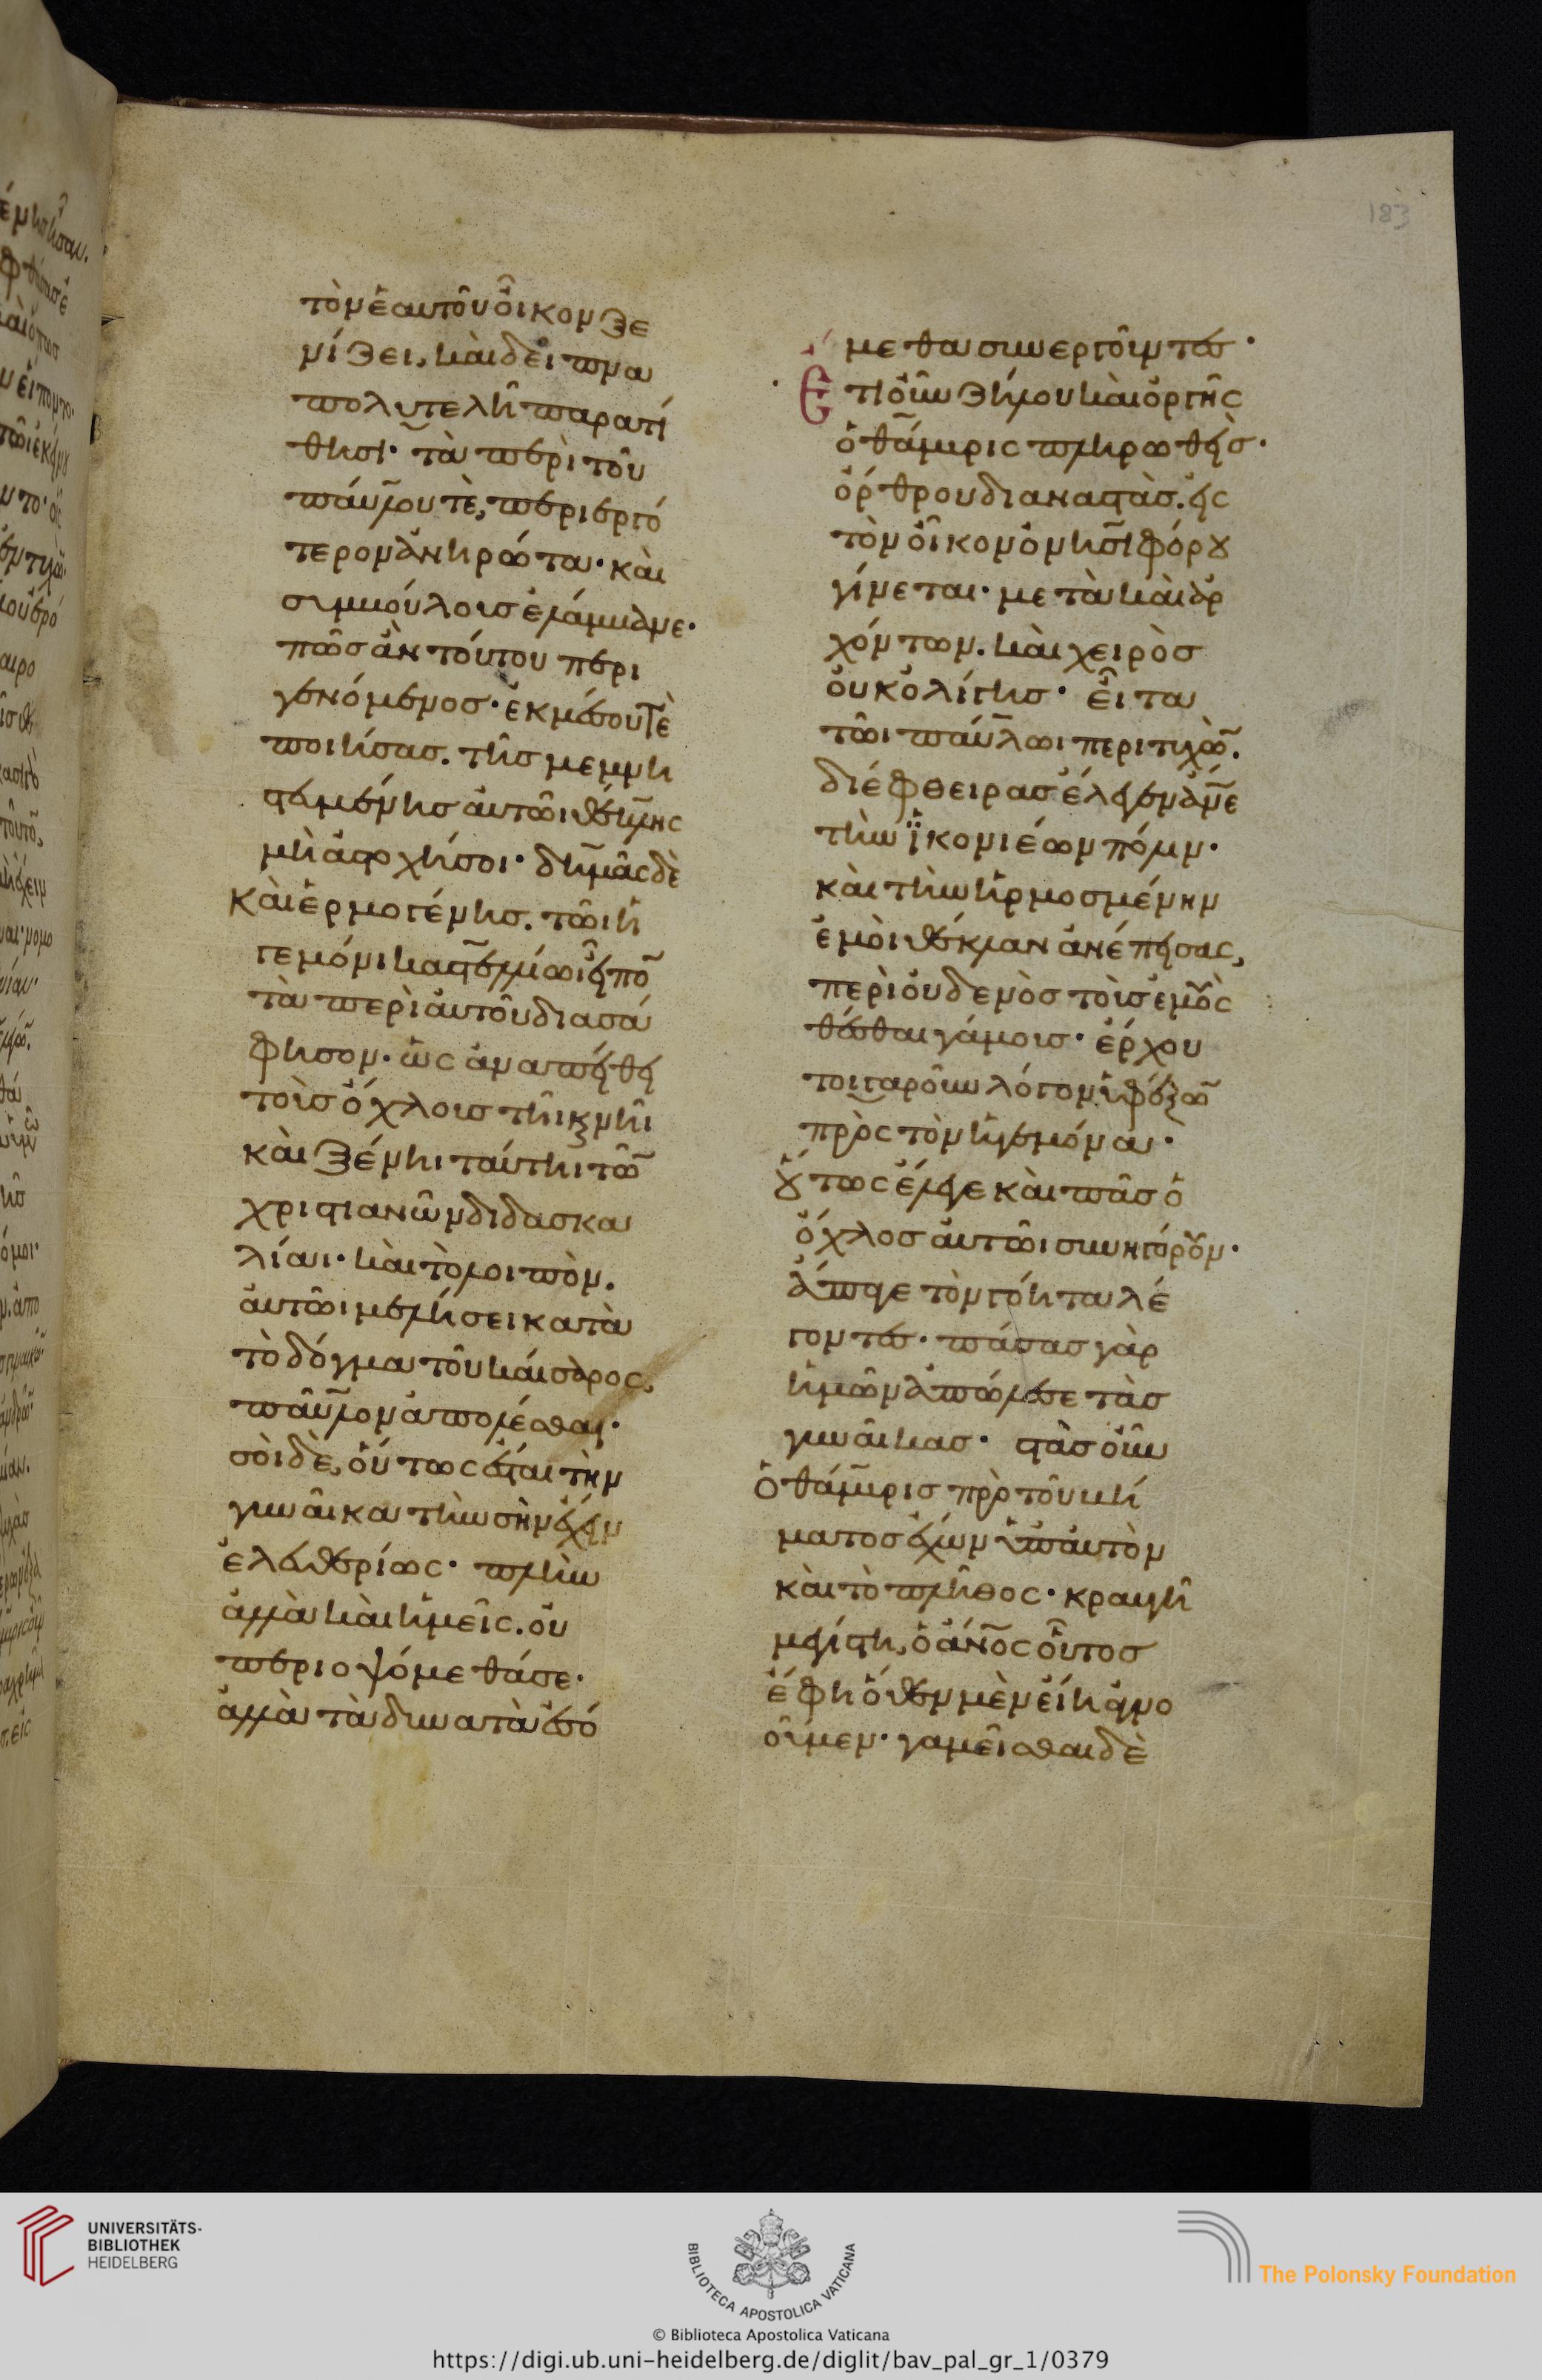 183
τὸν ἑαυτοῦ οἶκον ξε
νίζει, καὶ δεῖπνα
πολυτελῆ παρατί
θησι· τὰ περὶ τοῦ
παύλου τὲ, περιεργό
τερον ἀνηρώτα· καὶ
συμβούλοις ἐλάμβανε·
πῶς ἂν τούτου περι
γενόμενος· ἐκ μέσου τὲ
ποιήσας. τῆς μεμνη
στευμένης αὐτῶι θέκλης
μὴ ἀστοχήσοι· δημᾶς δὲ
καὶ ἑρμογένης. τῶι ἡ
γεμόνι καστελλίωι εἶπον
τὰ περὶ αὐτοῦ διασά
φησον· ὡς ἀναπείθει
τοῖς ὄχλοις τῆι καινῆι
καὶ ξένηι ταύτηι τῶν
χριστιανῶν διδασκα
λίαι· καὶ τὸ λοιπὸν.
αὐτῶι μελήσει κατὰ
τὸ δόγμα τοῦ καίσαρος,
παῦλον ἀπολέσθαι·
σοὶ δὲ, οὕτως ἔσται τὴν
γυναῖκα τὴν σὴν ἔχειν
ἐλευθερίως· πλὴν
ἀλλὰ καὶ ἡμεῖς. οὐ
περιοψόμεθά σε·
ἀλλὰ τὰ δυνατὰ ἐσό
μεθα συνεργοῦντες·
Ἔτι οὖν ζήλου καὶ ὀργῆς
ὁ θάμυρις πληρωθεὶς·
ὄρθρου διαναστὰς. εἰς
τὸν οἶκον ὀνησιφόρου
γίνεται· μετὰ καὶ ἀρ
χόντων. καὶ χειρὸς
οὐκ ὀλίγης· εἶτα
τῶι παύλωι περιτυχὼν.
διέφθειρας ἔλεγεν ἄνε
τὴν ἰκονιέων πόλιν·
καὶ τὴν ἡρμοσμένην
ἐμοὶ θέκλαν ἀνέπεισας,
περὶ οὐδενὸς τοὺς ἐμοὺς
θέσθαι γάμους· ἔρχου
τοιγαροῦν λόγον ὑφέξων
πρὸς τὸν ἡγεμόνα·
οὕτως ἔλεγε καὶ πᾶς ὁ
ὄχλος αὐτῶι συνηγόρουν·
ἄπαγε τὸν γόητα λέ
γοντες· πάσας γὰρ
ἡμῶν ἀπώλεσε τὰς
γυναῖκας· στὰς οὖν
ὁ θάμυρις πρὸ τοῦ βή
ματος ἔχων ὑπ' αὐτὸν
καὶ τὸ πλῆθος· κραυγῆ
μεγίστη, ὁ ἄνος οὗτος
ἔφη ὅθεν μὲν εἴη ἀγνο
οῦμεν· γαμεῖσθαι δὲ
UNIVERSITÄTS-
BIBLIOTHEK
HEIDELBERG
BIBLIOTECA APOSTOLICA VATICANA
The Polonsky Foundation
© Biblioteca Apostolica Vaticana
https://digi.ub.uni-heidelberg.de/diglit/bav_pal_gr_1/0379